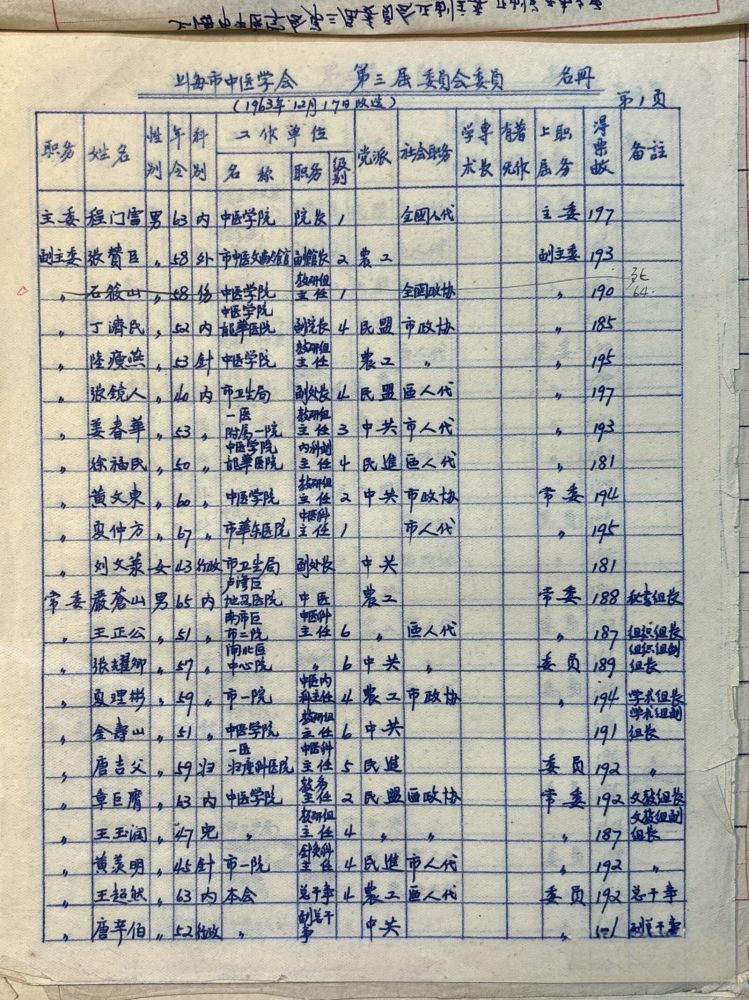 上海市中医学会 第三届委员会委员 名册
(1963年12月17日改选) 第1页
职务 姓名 性别 年令 科别 工作单位 名称 职务 级别 党派 社会职务 学术专长 有著无作 上届职务 得票数 备註
主委 程门雪 男 63 内 中医学院 院长 1 全国人代 主委 197
副主委 张贊臣 〃 58 外 市中医文献馆 副馆长 2 農工 副主委 193
〃 石筱山 〃 58 伤 中医学院 教研组主任 1 全国政协 〃 190 64.
〃 丁濟民 〃 52 内 中医学院龍華医院 副院长 4 民盟 市政协 〃 185
〃 陸瘦燕 〃 53 針 中医学院 教研组主任 農工 〃 〃 195
〃 张镜人 〃 40 内 市卫生局 副处长 4 民盟 區人代 〃 197
〃 姜春華 〃 53 〃 一医附属一院 教研组主任 3 中共 市人代 〃 193
〃 徐福民 〃 50 〃 中医学院龍華医院 内科副主任 4 民進 區人代 〃 181
〃 黄文東 〃 60 〃 中医学院 教研组主任 2 中共 市政协 常委 194
〃 夏仲方 〃 67 〃 市華东医院 中医科主任 1 市人代 〃 195
〃 刘文菉 女 43 行政 市卫生局 副处长 中共 181
常委 嚴蒼山 男 65 内 卢湾區地段医院 中医 農工 常委 188 秘書组长
〃 王正公 〃 51 〃 南市區市二院 中医科主任 6 〃 區人代 〃 187 组织组长
〃 张耀卿 〃 57 〃 闸北區中心院 〃 6 中共 〃 委员 189 组织组副组长
〃 夏理彬 〃 59 〃 市一院 中医内科主任 4 農工 市政协 〃 194 学术组长
〃 金壽山 〃 51 〃 中医学院 教研组主任 6 中共 191 学术组副组长
〃 唐吉父 〃 59 妇 一医妇产科医院 中医科主任 5 民進 委员 192 〃
〃 章巨膺 〃 63 内 中医学院 教务主任 2 民盟 區政协 常委 192 文教组长
〃 王玉润 〃 47 兒 〃 教研组主任 4 〃 〃 〃 187 文教组副组长
〃 黄羡明 〃 45 針 市一院 針灸科主任 4 民進 市人代 〃 192 〃
〃 王超然 〃 63 内 本会 总干事 4 農工 區人代 委员 192 总干事
〃 唐辛伯 〃 52 行政 〃 副总干事 中共 〃 副总干事